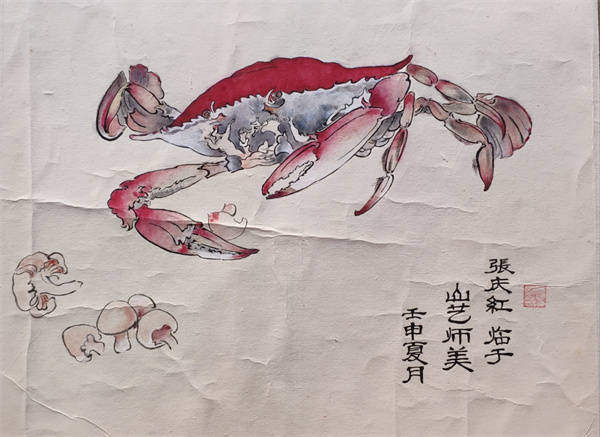 張庆紅 临于
山艺师美
壬申夏月